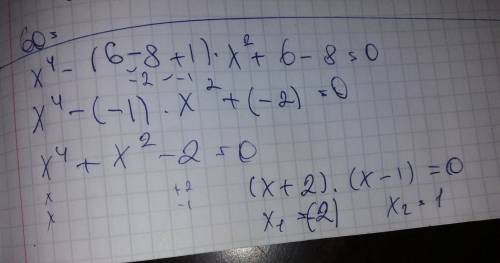 60.
x⁴ - (6 - 8 + 1) · x² + 6 - 8 = 0
-2 -1
x⁴ - (-1) · x² + (-2) = 0
x⁴ + x² - 2 = 0
x +2 (x + 2) · (x - 1) = 0
x -1 x₁ = (-2) x₂ = 1